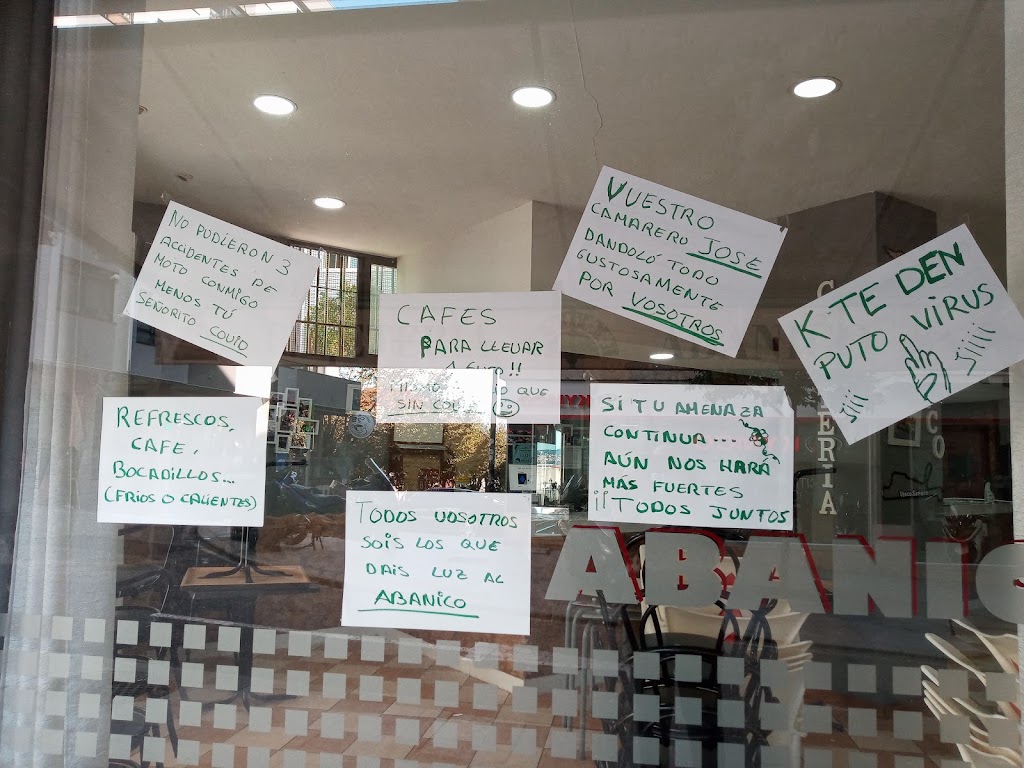 NO PUDIERON 3
ACCIDENTES DE
MOTO CONMIGO
MENOS TÚ
SEÑORITO COVID
VUESTRO
CAMARERO JOSE
DANDOLÓ TODO
GUSTOSAMENTE
POR VOSOTROS
K TE DEN
PUTO VIRUS
jiii jiiii
CAFES
PARA LLEVAR
1 EURO!!
QUE
SIN
REFRESCOS,
CAFE,
BOCADILLOS...
(FRIOS O CALIENTES)
SI TU AMENAZA
CONTINUA...
AÚN NOS HARÁ
MÁS FUERTES
¡¡TODOS JUNTOS
TODOS VOSOTROS
SOIS LOS QUE
DAIS LUZ AL
ABANICO
ABANIC